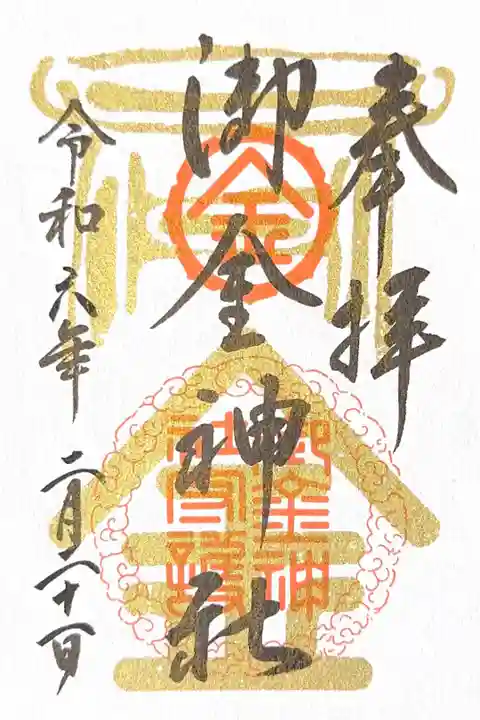 奉拝
御金神社
令和六年二月二十一日
金
御金神
社守護